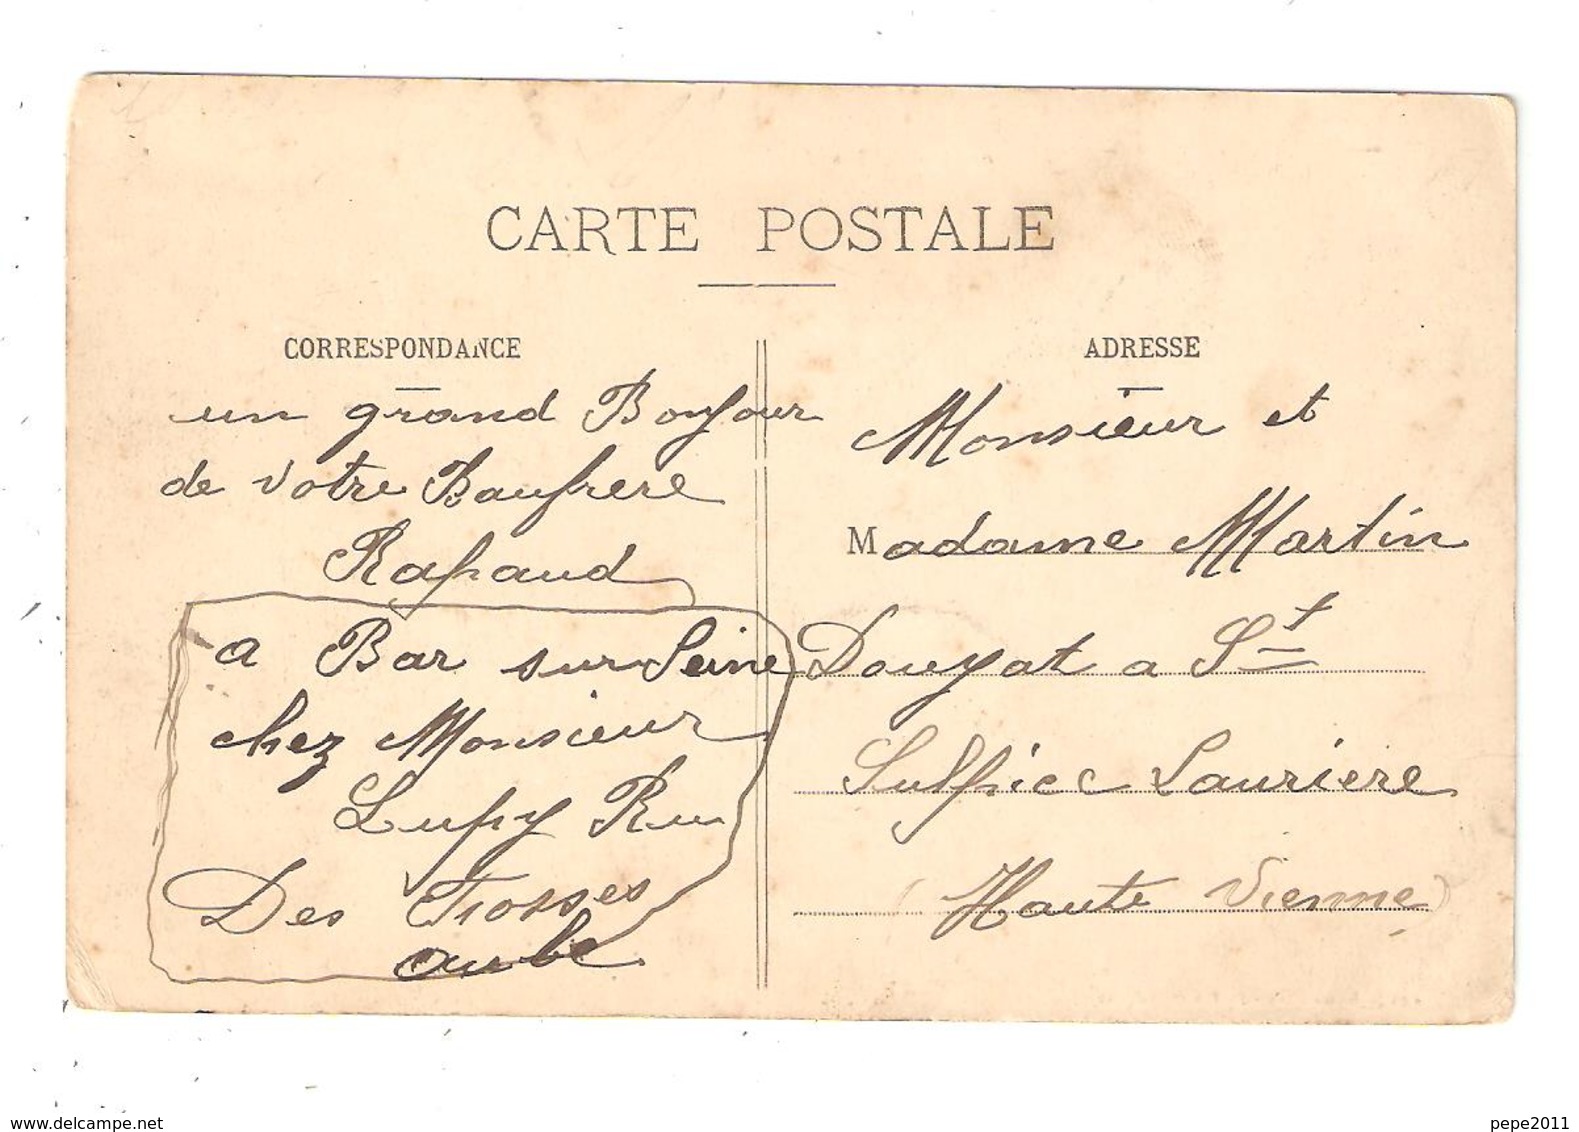 CARTE POSTALE
CORRESPONDANCE
un grand Bonjour
de votre Baufrere
Rapaud
a Bar sur Seine
chez Monsieur
Lupy Ru
Des Fosses
aube
ADRESSE
Monsieur et
Madame Martin
Douyat a St
Sulpice Lauriere
(Haute Vienne)
www.delcampe.net
pepe2011